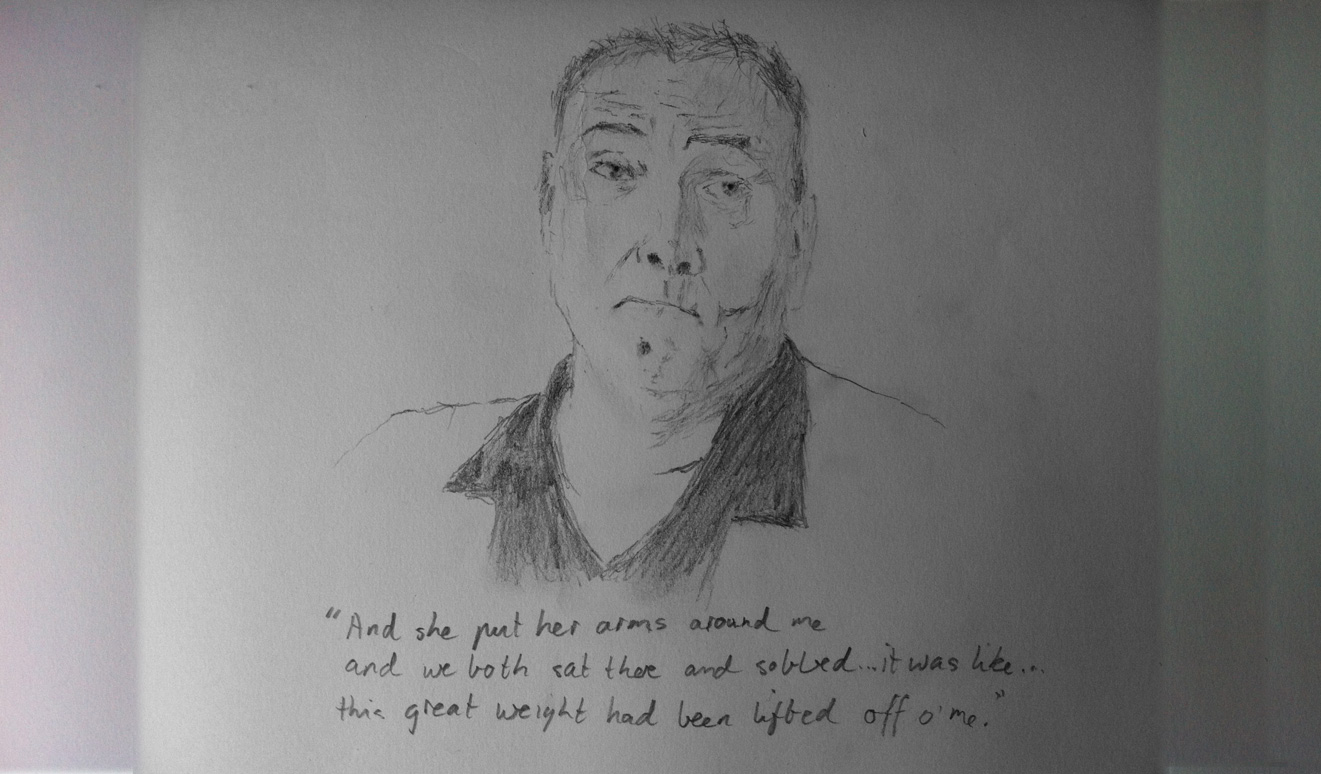 “And she put her arms around me
and we both sat there and sobbed...it was like...
this great weight had been lifted off o' me.”